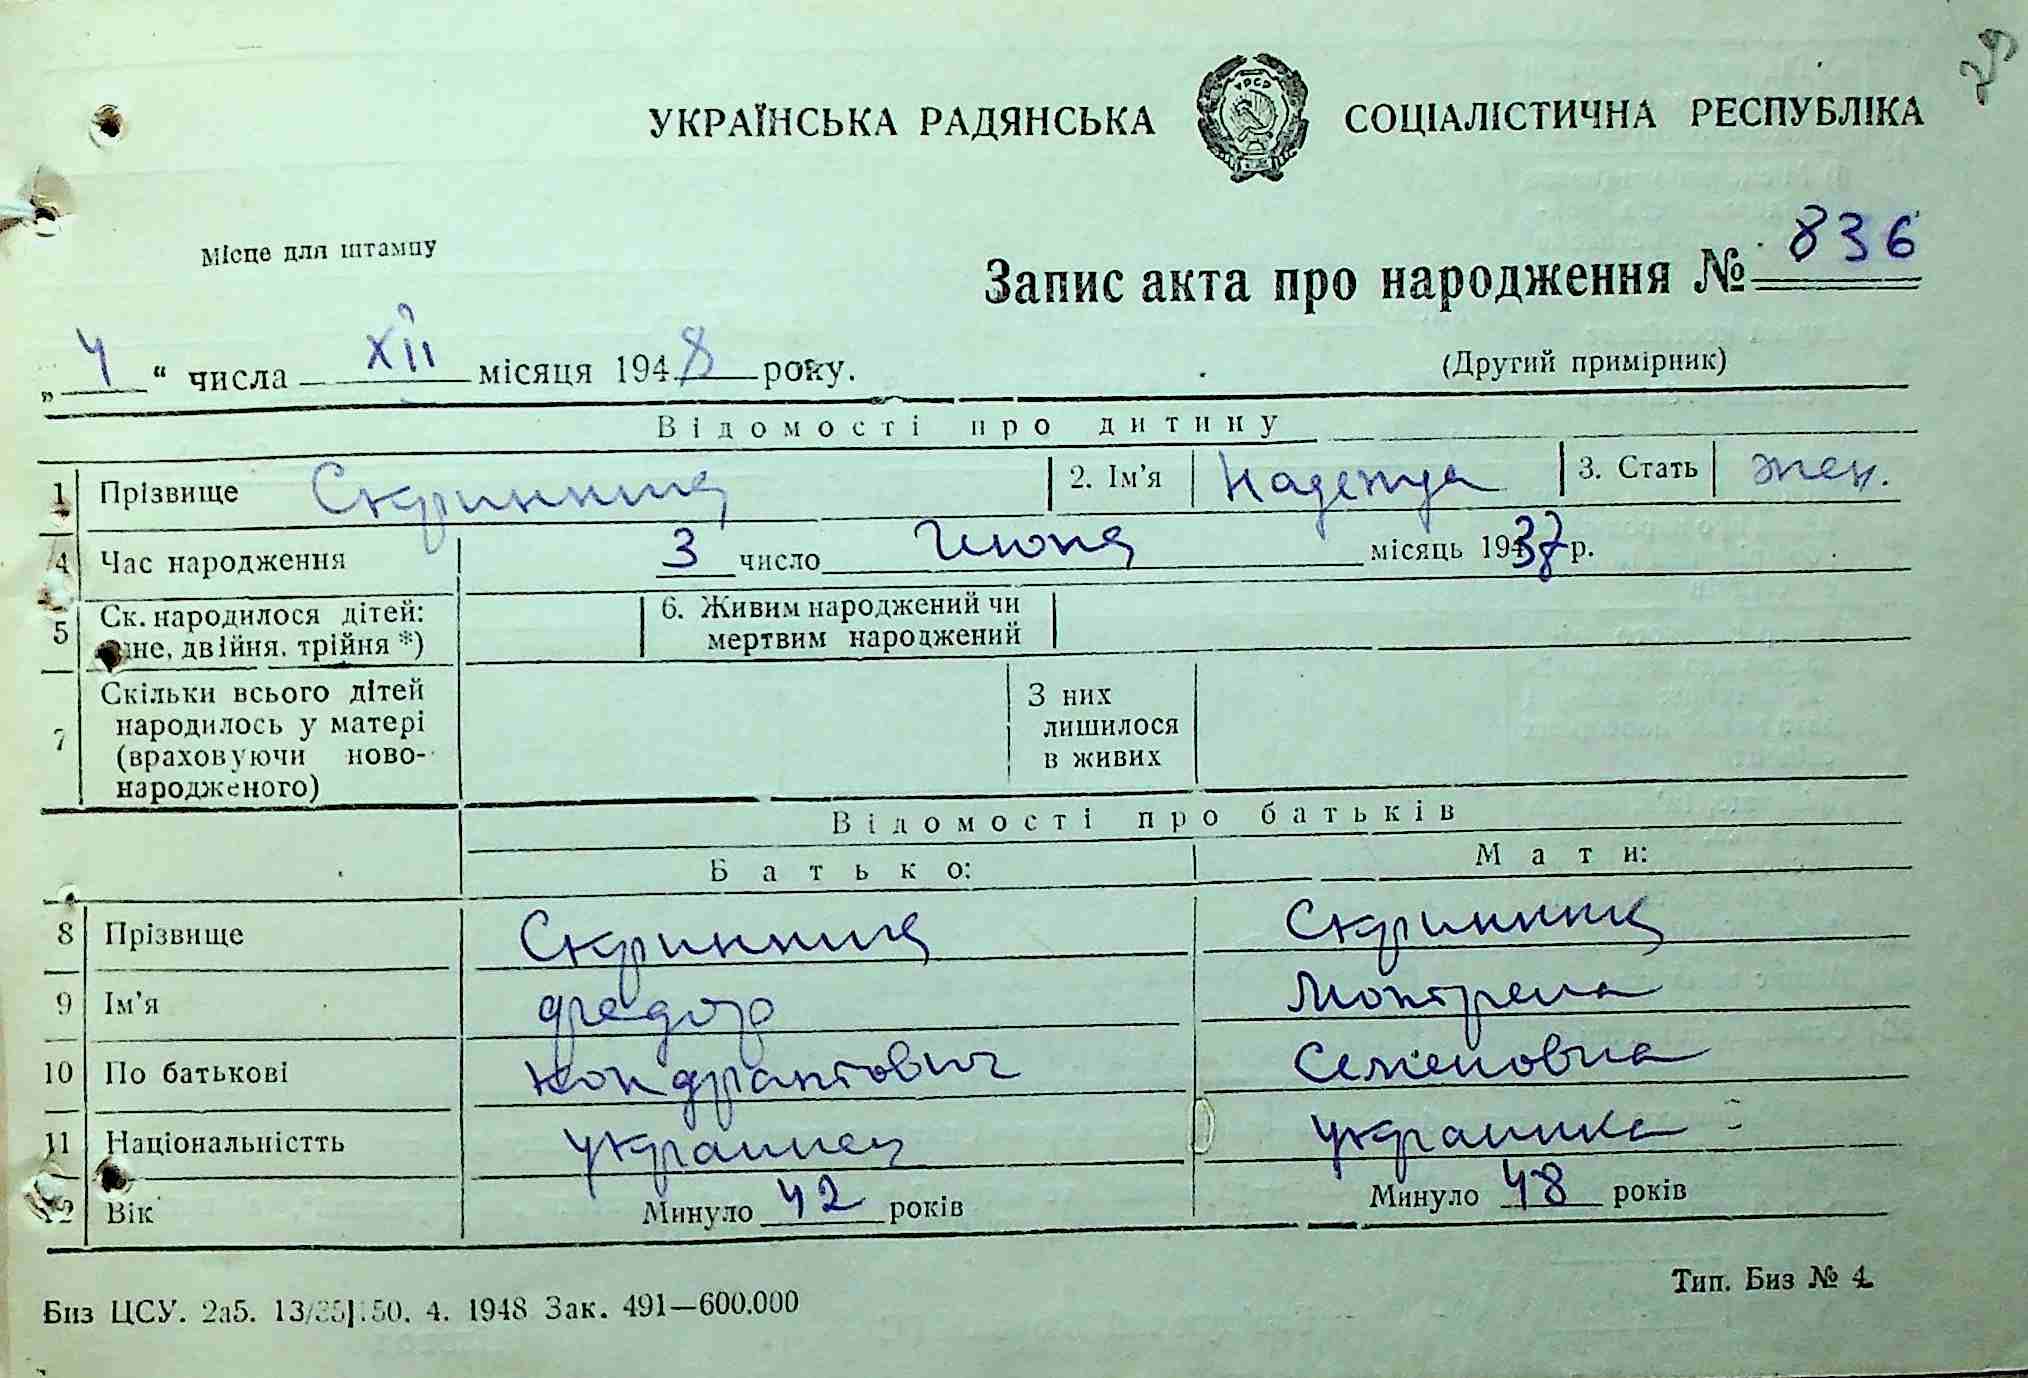 29
УКРАЇНСЬКА РАДЯНСЬКА СОЦІАЛІСТИЧНА РЕСПУБЛІКА
УРСР
Місце для штампу
Запис акта про народження № 836
„ 4 “ числа XII місяця 1948 року.
(Другий примірник)
Відомості про дитину
1 Прізвище Скринник 2. Ім'я Надежда 3. Стать жен.
4 Час народження 3 число Июня місяць 1937 р.
5 Ск. народилося дітей: одне, двійня, трійня *) 6. Живим народжений чи мертвим народжений
7 Скільки всього дітей народилось у матері (враховуючи ново-народженого) З них лишилося в живих
Відомості про батьків
Батько: Мати:
8 Прізвище Скринник Скринник
9 Ім'я Федор Мотрена
10 По батькові Кондратович Семеновна
11 Національністть украинец украинка
12 Вік Минуло 42 років Минуло 48 років
Биз ЦСУ. 2а5. 13/35]:50. 4. 1948 Зак. 491—600.000
Тип. Биз № 4